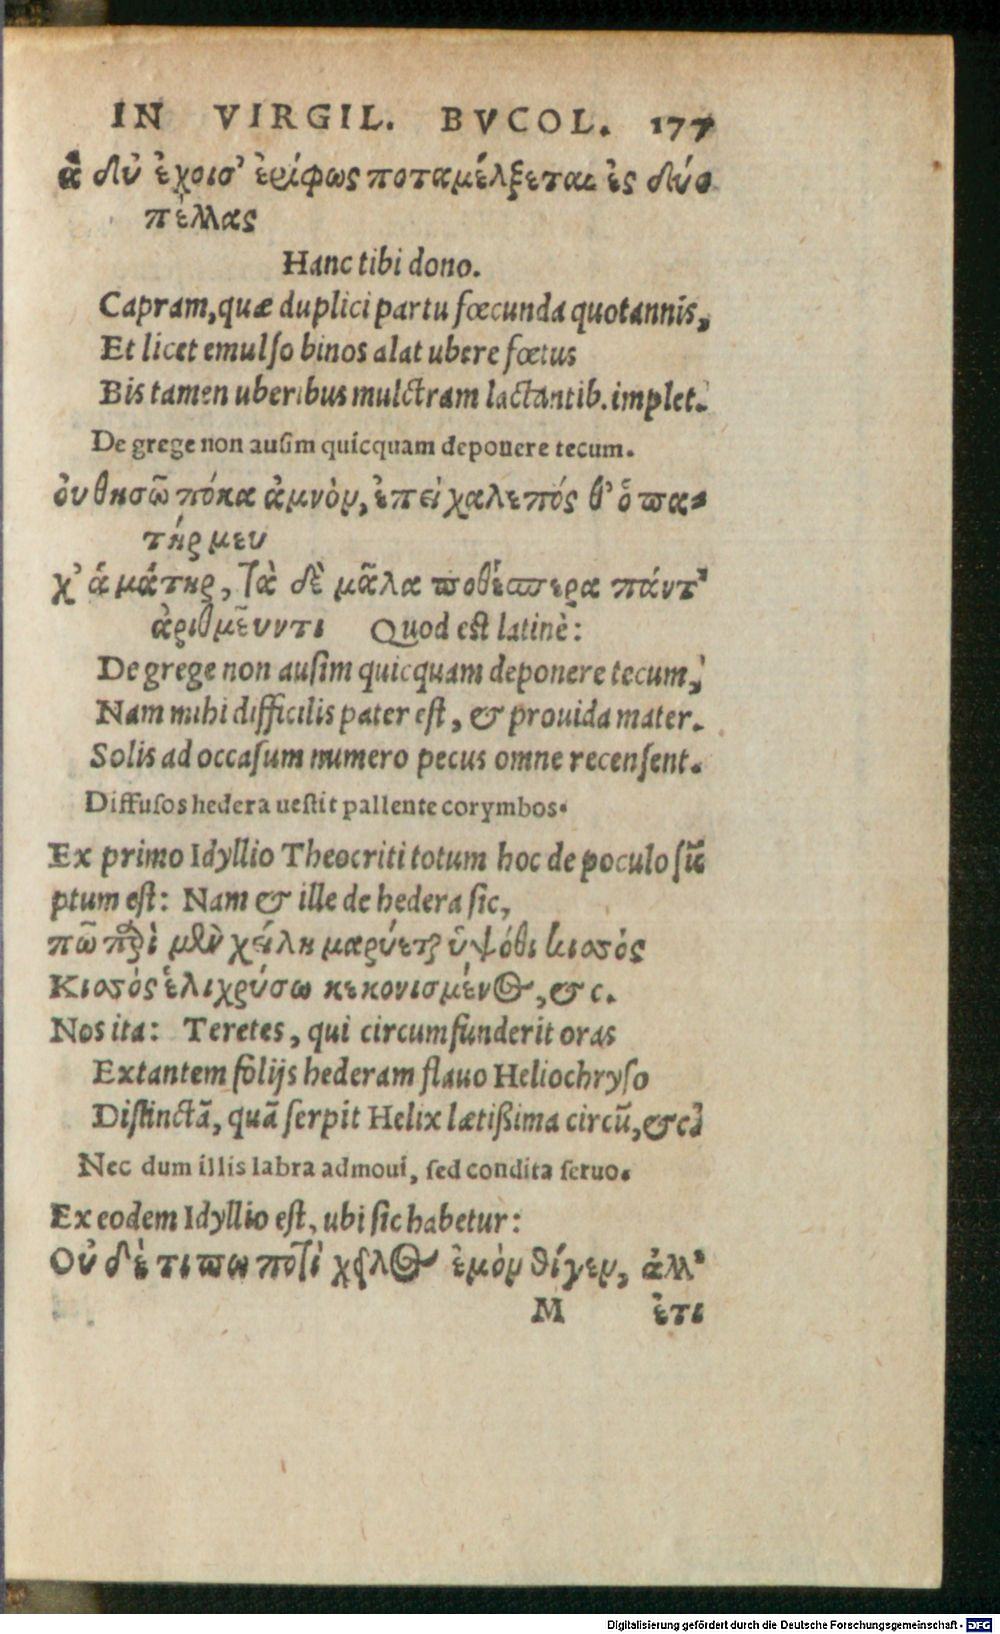 IN VIRGIL. BVCOL. 177
ἃ δύ ἐχοισ' ἐρίφως ποταμέλξεται ἐς δύο
πέλλας
Hanc tibi dono.
Capram, quæ duplici partu fœcunda quotannis,
Et licet emulso binos alat ubere fœtus
Bis tamen uberibus mulctram lactantib. implet.
De grege non ausim quicquam deponere tecum.
ὀυ θησῶ πόκα ἀμνὸν, ἐπεὶ χαλεπός θ' ὁ πα-
τήρ μευ
χ' ἁ μάτηρ, τὰ δὲ μᾶλα ποθέσπερα πάντ'
ἀριθμεῦντι Quod est latinè:
De grege non ausim quicquam deponere tecum,
Nam mihi difficilis pater est, & prouida mater.
Solis ad occasum numero pecus omne recensent.
Diffusos hedera uestit pallente corymbos.
Ex primo Idyllio Theocriti totum hoc de poculo sũ
ptum est: Nam & ille de hedera sic,
πῶ ποτὶ μὲν χείλη μαρύεται ὑψόθι κισσὸς
Κισσὸς ἑλιχρύσω κεκονισμένος, &c.
Nos ita: Teretes, qui circumfunderit oras
Extantem folijs hederam flauo Heliochryso
Distinctã, quã serpit Helix lætißima circũ, &c.
Nec dum illis labra admoui, sed condita seruo.
Ex eodem Idyllio est, ubi sic habetur:
Οὐ δέ τι πω ποτὶ χεῖλος ἐμὸν θίγεν, ἀλλ'
M ἐτι
Digitalisierung gefördert durch die Deutsche Forschungsgemeinschaft - DFG